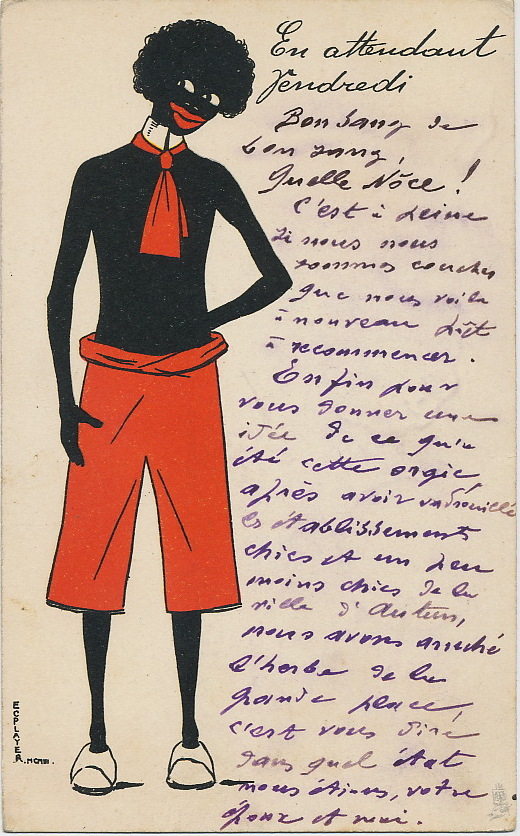 En attendant
Vendredi
Bon sang de
bon sang,
Quelle Nôce !
C'est à peine
si nous nous
sommes couchés
que nous voila
à nouveau prêt
à recommencer.
Enfin pour
vous donner une
idée de ce qu'a
été cette orgie,
après avoir vadrouillé
les établissements
chics et un peu
moins chics de la
ville d'Autun,
nous avons arraché
l'herbe de la
grande place,
c'est vous dire
dans quel état
nous étions, votre
et moi.
ECPLATER. MCMIII.